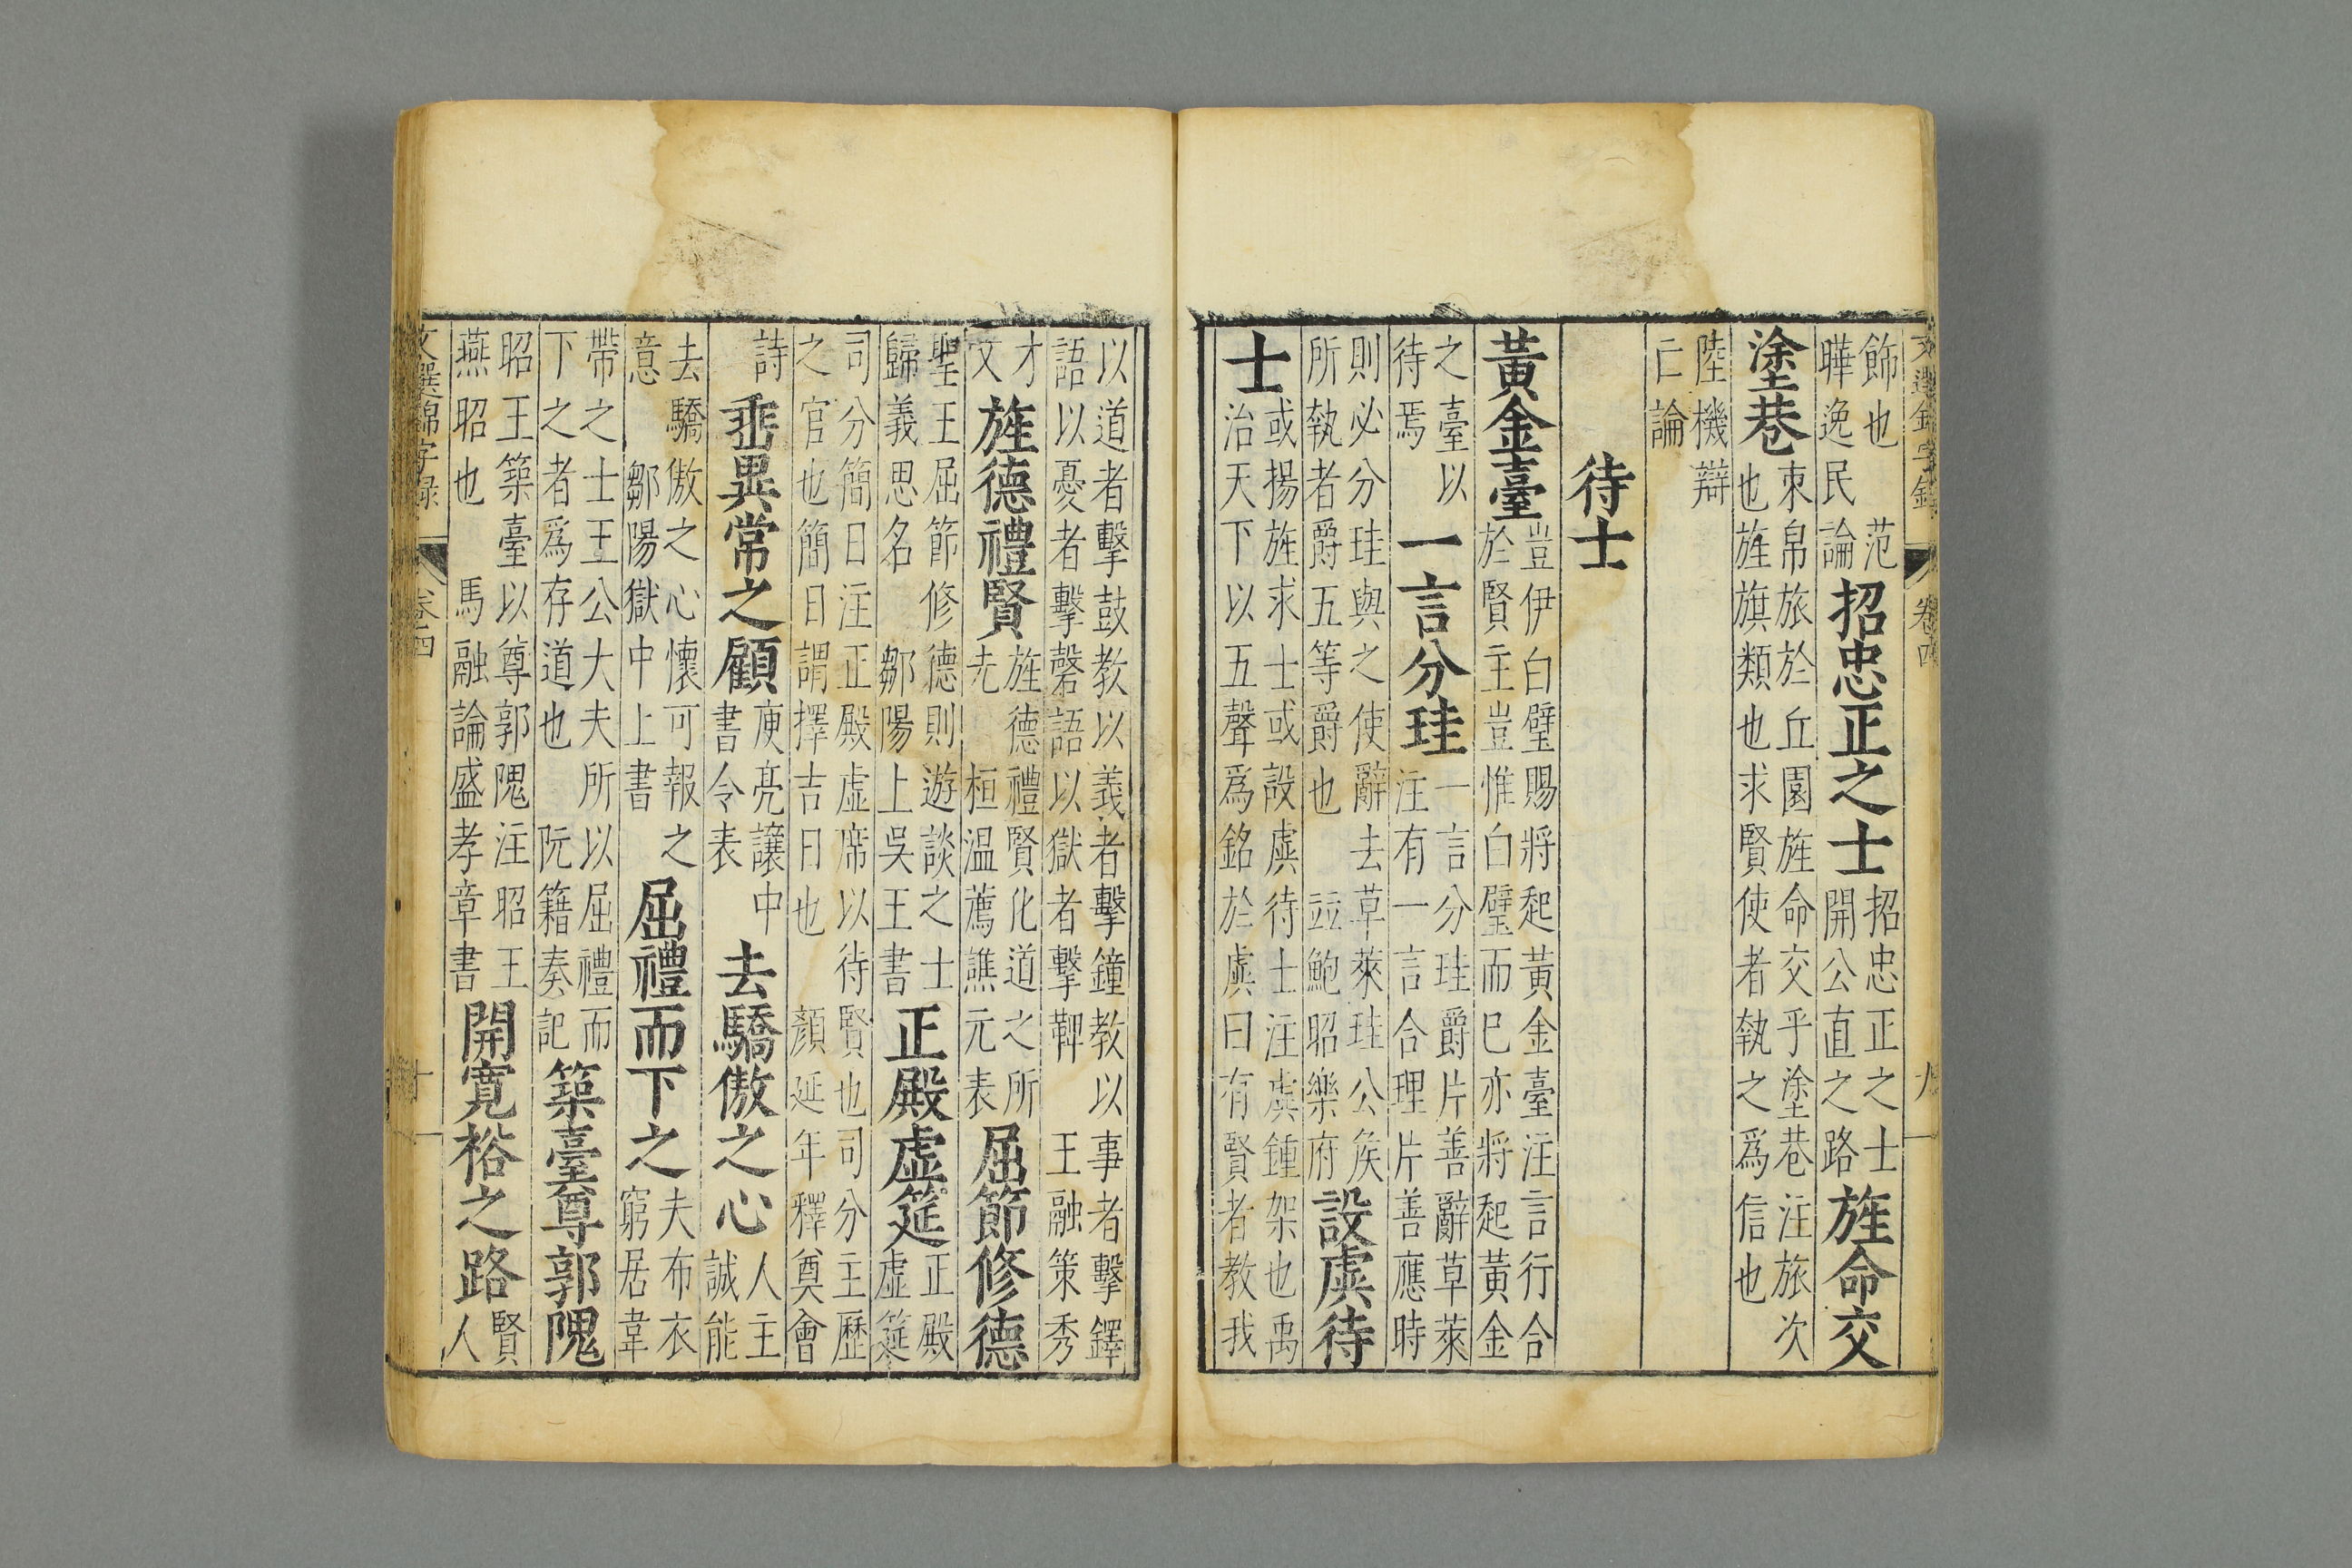 文選錦字錄 卷四 九
飾也 范曄逸民論 招忠正之士 招忠正之士開公直之路 旌命交
塗巷 束帛旅於丘園旌命交乎塗巷注旅次也旌旗類也求賢使者執之爲信也
陸機辯亡論
待士
黃金臺 豈伊白璧賜將起黃金臺注言行合於賢主豈惟白璧而已亦將起黃金
之臺以待焉 一言分珪 一言分珪爵片善辭草萊注有一言合理片善應時
則必分珪與之使辭去草萊珪公侯所執者爵五等爵也 並鮑昭樂府 設虡待
士 或揚旌求士或設虡待士注虡鍾架也禹治天下以五聲爲銘於虡曰有賢者教我
以道者擊鼓教以義者擊鐘教以事者擊鐸語以憂者擊磬語以獄者擊鞞 王融策秀
才文 旌德禮賢 旌德禮賢化道之所先 桓温薦譙元表 屈節修德
聖王屈節修德則遊談之士歸義思名 鄒陽上吳王書 正殿虛筵 正殿虛筵
司分簡日注正殿虛席以待賢也司分主歷之官也簡日謂擇吉日也 顏延年釋奠會
詩 垂異常之顧 庾亮讓中書令表 去驕傲之心 人主誠能
去驕傲之心懷可報之意 鄒陽獄中上書 屈禮而下之 夫布衣窮居韋
帶之士王公大夫所以屈禮而下之者爲存道也 阮籍奏記 築臺尊郭隗
昭王築臺以尊郭隗注昭王燕昭也 馬融論盛孝章書 開寬裕之路 賢人
文選錦字錄 卷四 十